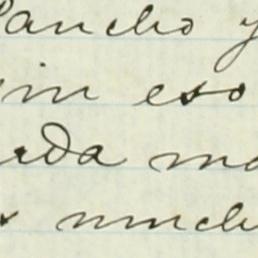 Pancho y
sin eso
ada ma
s much